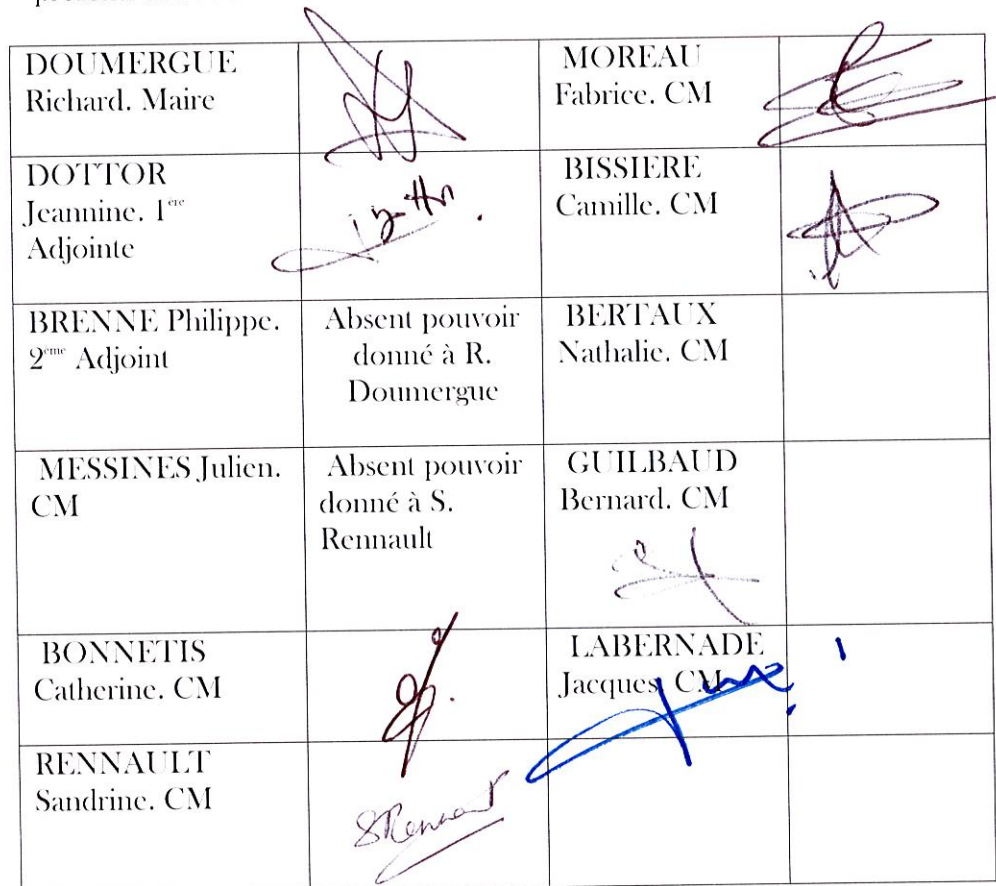 DOUMERGUE
Richard. Maire
MOREAU
Fabrice. CM
DOTTOR
Jeannine. 1ère
Adjointe
BISSIERE
Camille. CM
BRENNE Philippe.
2ème Adjoint
Absent pouvoir
donné à R.
Doumergue
BERTAUX
Nathalie. CM
MESSINES Julien.
CM
Absent pouvoir
donné à S.
Rennault
GUILBAUD
Bernard. CM
BONNETIS
Catherine. CM
LABERNADE
Jacques. CM
RENNAULT
Sandrine. CM